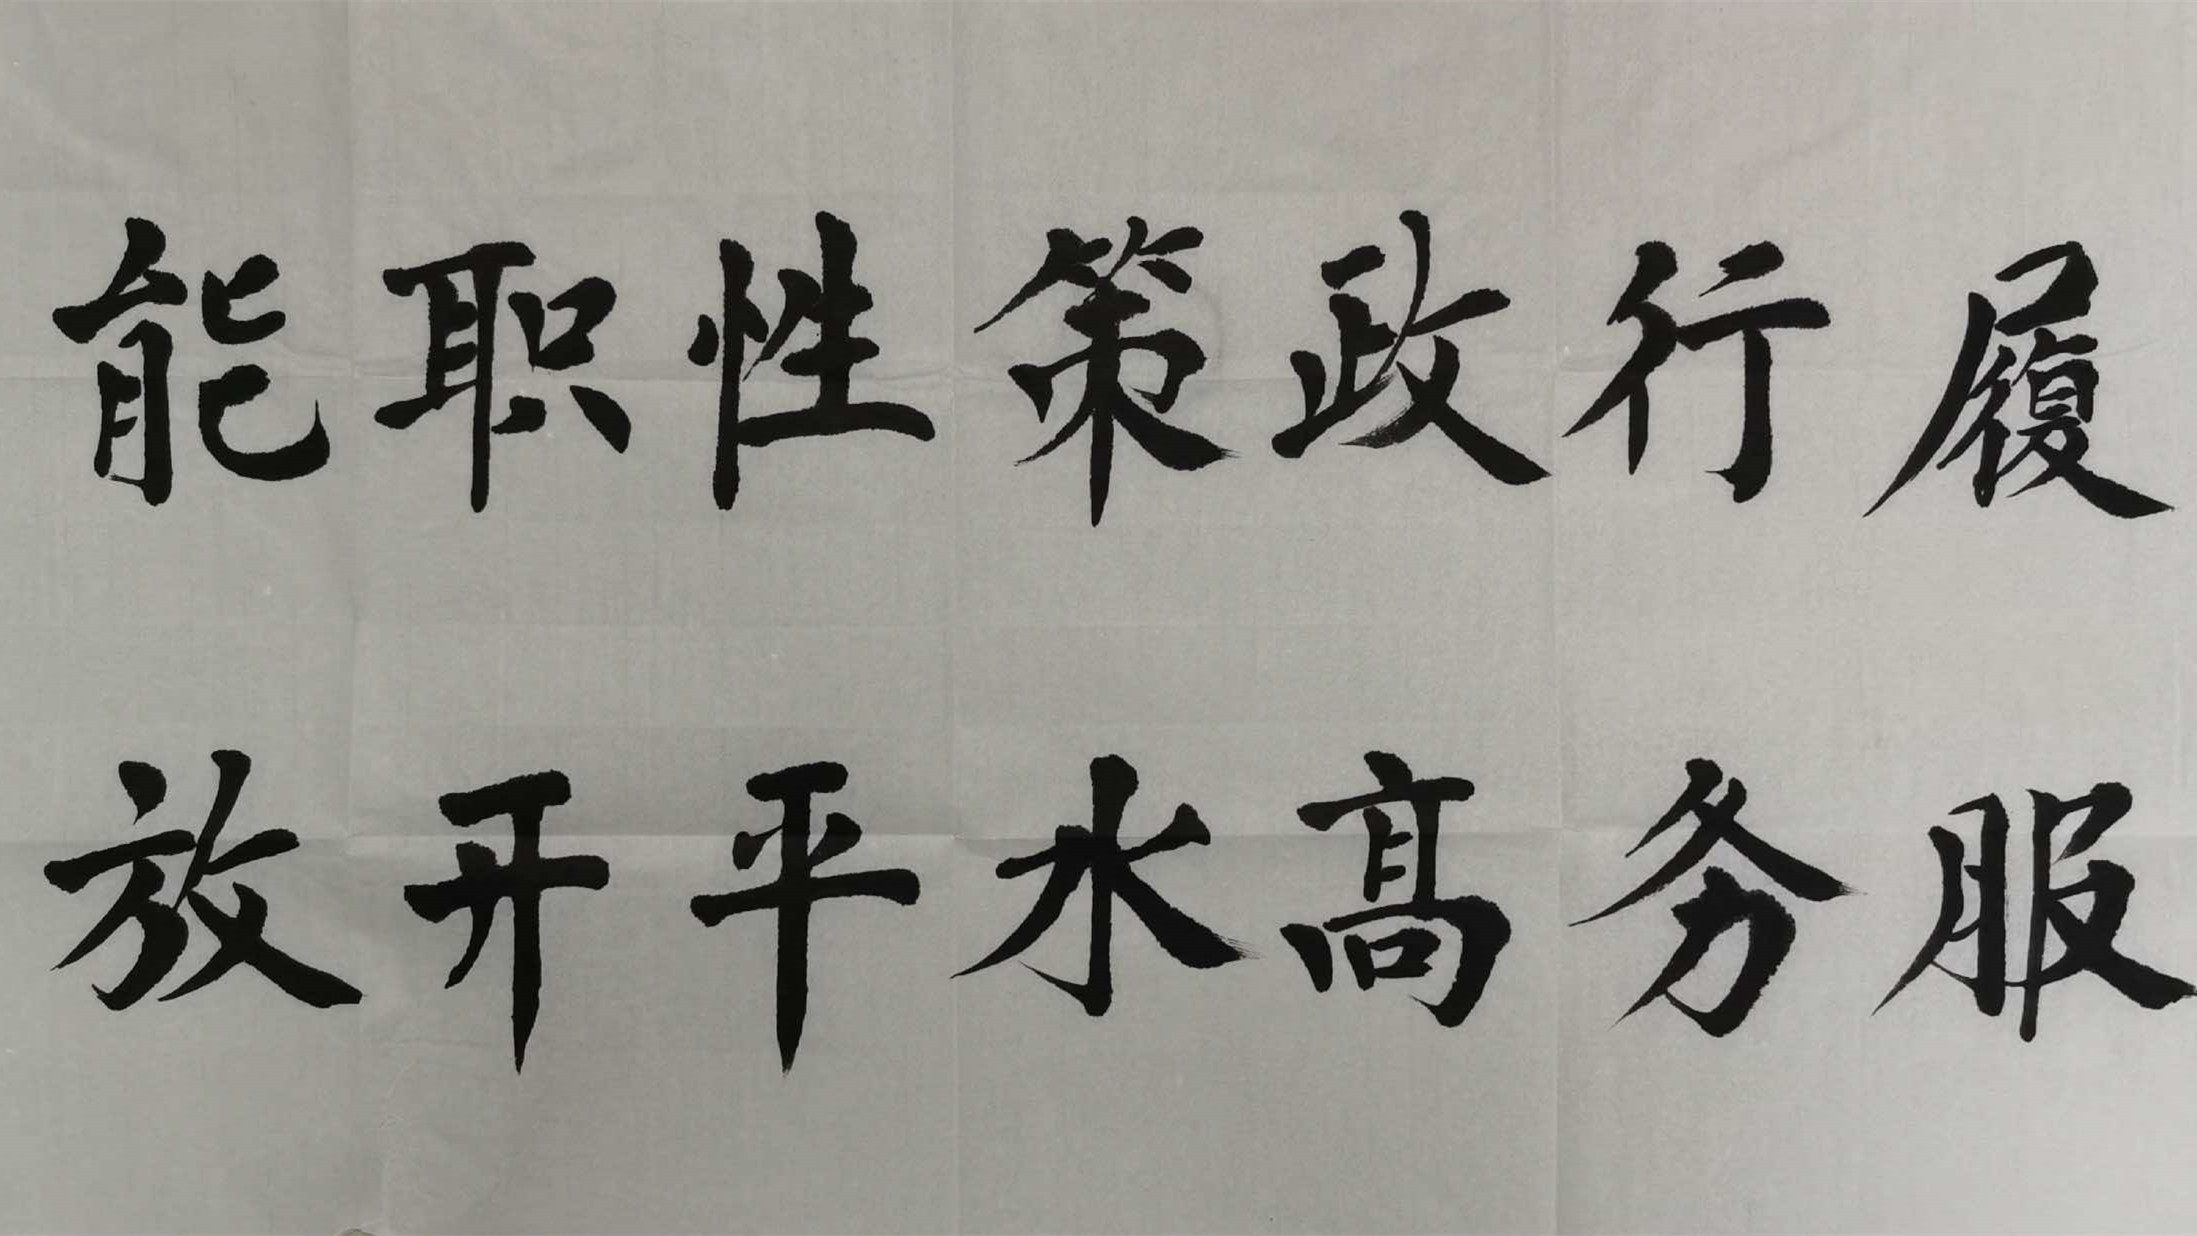 履行政策性职能
服务髙水平开放